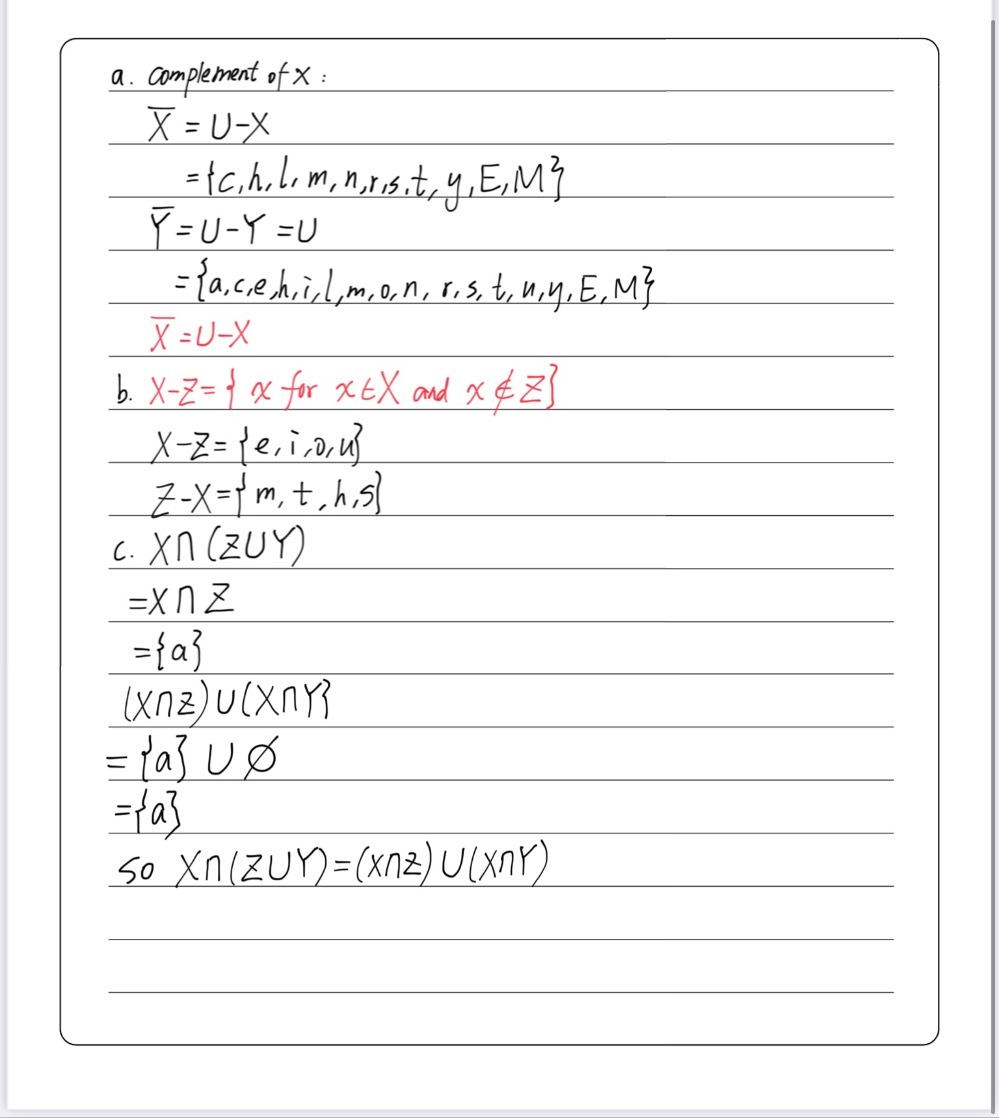 a. complement of X :
X̅ = U-X
={c,h,l,m,n,r,s,t,y,E,M}
Y̅=U-Y=U
={a,c,e,h,i,l,m,o,n,r,s,t,u,y,E,M}
X̅=U-X
b. X-Z={ x for x∈X and x∉Z}
X-Z={e,i,o,u}
Z-X={m,t,h,s}
c. X∩(Z∪Y)
=X∩Z
={a}
(X∩Z)∪(X∩Y}
={a}∪∅
={a}
so X∩(Z∪Y)=(X∩Z)∪(X∩Y)